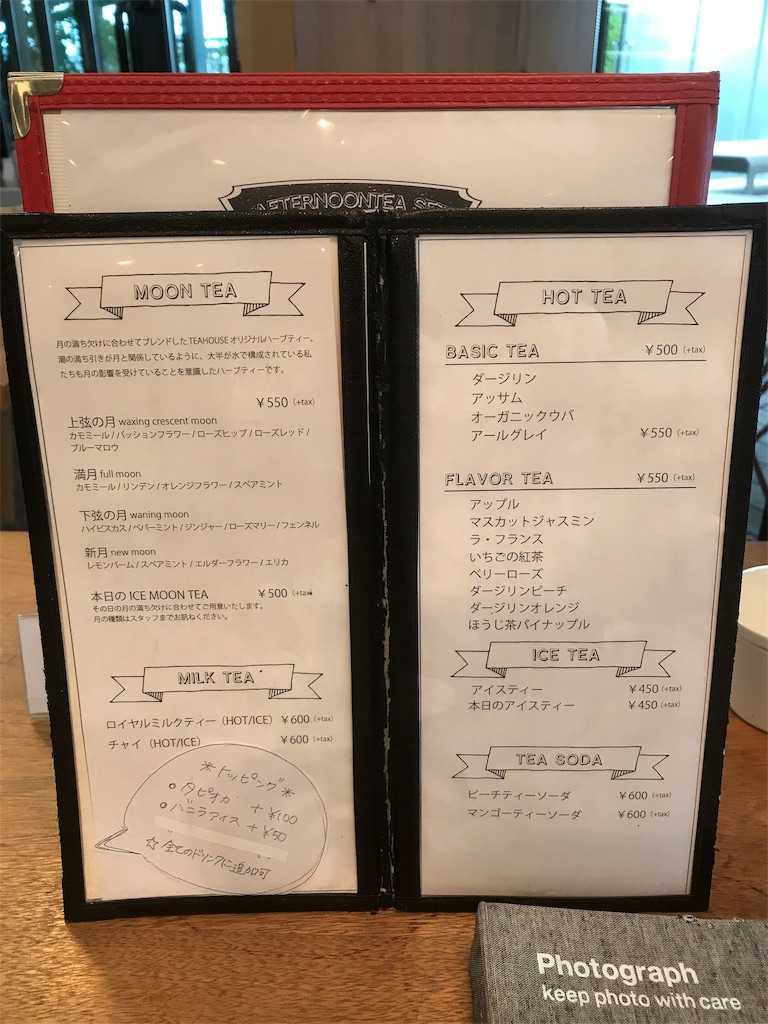 AFTERNOONTEA SET
MOON TEA
月の満ち欠けに合わせてブレンドした TEAHOUSE オリジナルハーブティー。
潮の満ち引きが月と関係しているように、大半が水で構成されている私
たちも月の影響を受けていることを意識したハーブティーです。
￥550 (+tax)
上弦の月 waxing crescent moon
カモミール / パッションフラワー / ローズヒップ / ローズレッド /
ブルーマロウ
満月 full moon
カモミール / リンデン / オレンジフラワー / スペアミント
下弦の月 waning moon
ハイビスカス / ペパーミント / ジンジャー / ローズマリー / フェンネル
新月 new moon
レモンバーム / スペアミント / エルダーフラワー / エリカ
本日の ICE MOON TEA ￥500 (+tax)
その日の月の満ち欠けに合わせてご用意いたします。
月の種類はスタッフまでお訊ねください。
MILK TEA
ロイヤルミルクティー (HOT/ICE) ￥600 (+tax)
チャイ (HOT/ICE) ￥600 (+tax)
＊トッピング＊
・タピオカ + ¥100
・バニラアイス + ¥50
☆全てのドリンクに追加可
HOT TEA
BASIC TEA ￥500 (+tax)
ダージリン
アッサム
オーガニックウバ
アールグレイ ￥550 (+tax)
FLAVOR TEA ￥550 (+tax)
アップル
マスカットジャスミン
ラ・フランス
いちごの紅茶
ベリーローズ
ダージリンピーチ
ダージリンオレンジ
ほうじ茶パイナップル
ICE TEA
アイスティー ￥450 (+tax)
本日のアイスティー ￥450 (+tax)
TEA SODA
ピーチティーソーダ ￥600 (+tax)
マンゴーティーソーダ ￥600 (+tax)
Photograph
keep photo with care